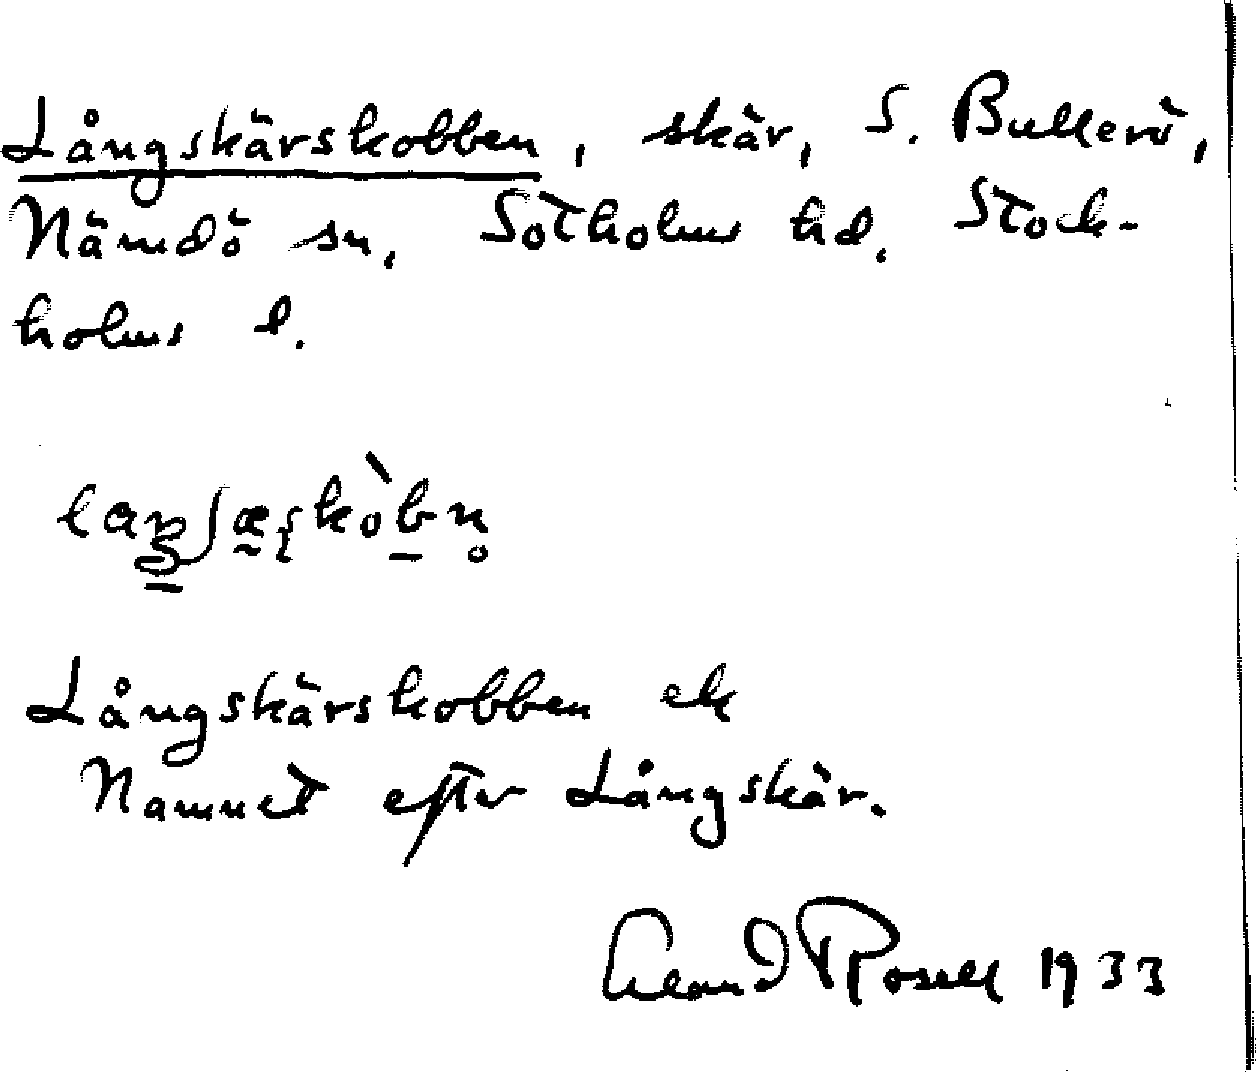 Långskärskobben, skär, S. Bullerö,
Nämdö sn, Sotholms hd. Stock-
holms l.
Långskärskobben ek
Namnet efter Långskär.
Rosell 1933